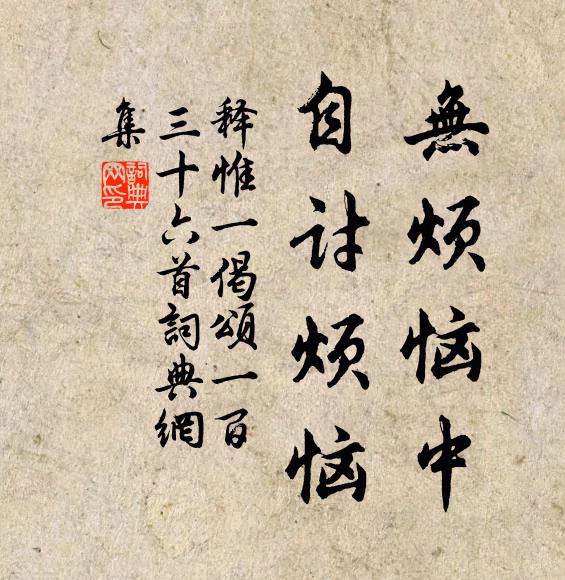 無烦恼中
自讨烦恼
释惟一偈頌一百
三十六首詞典網
集
詞典
网印